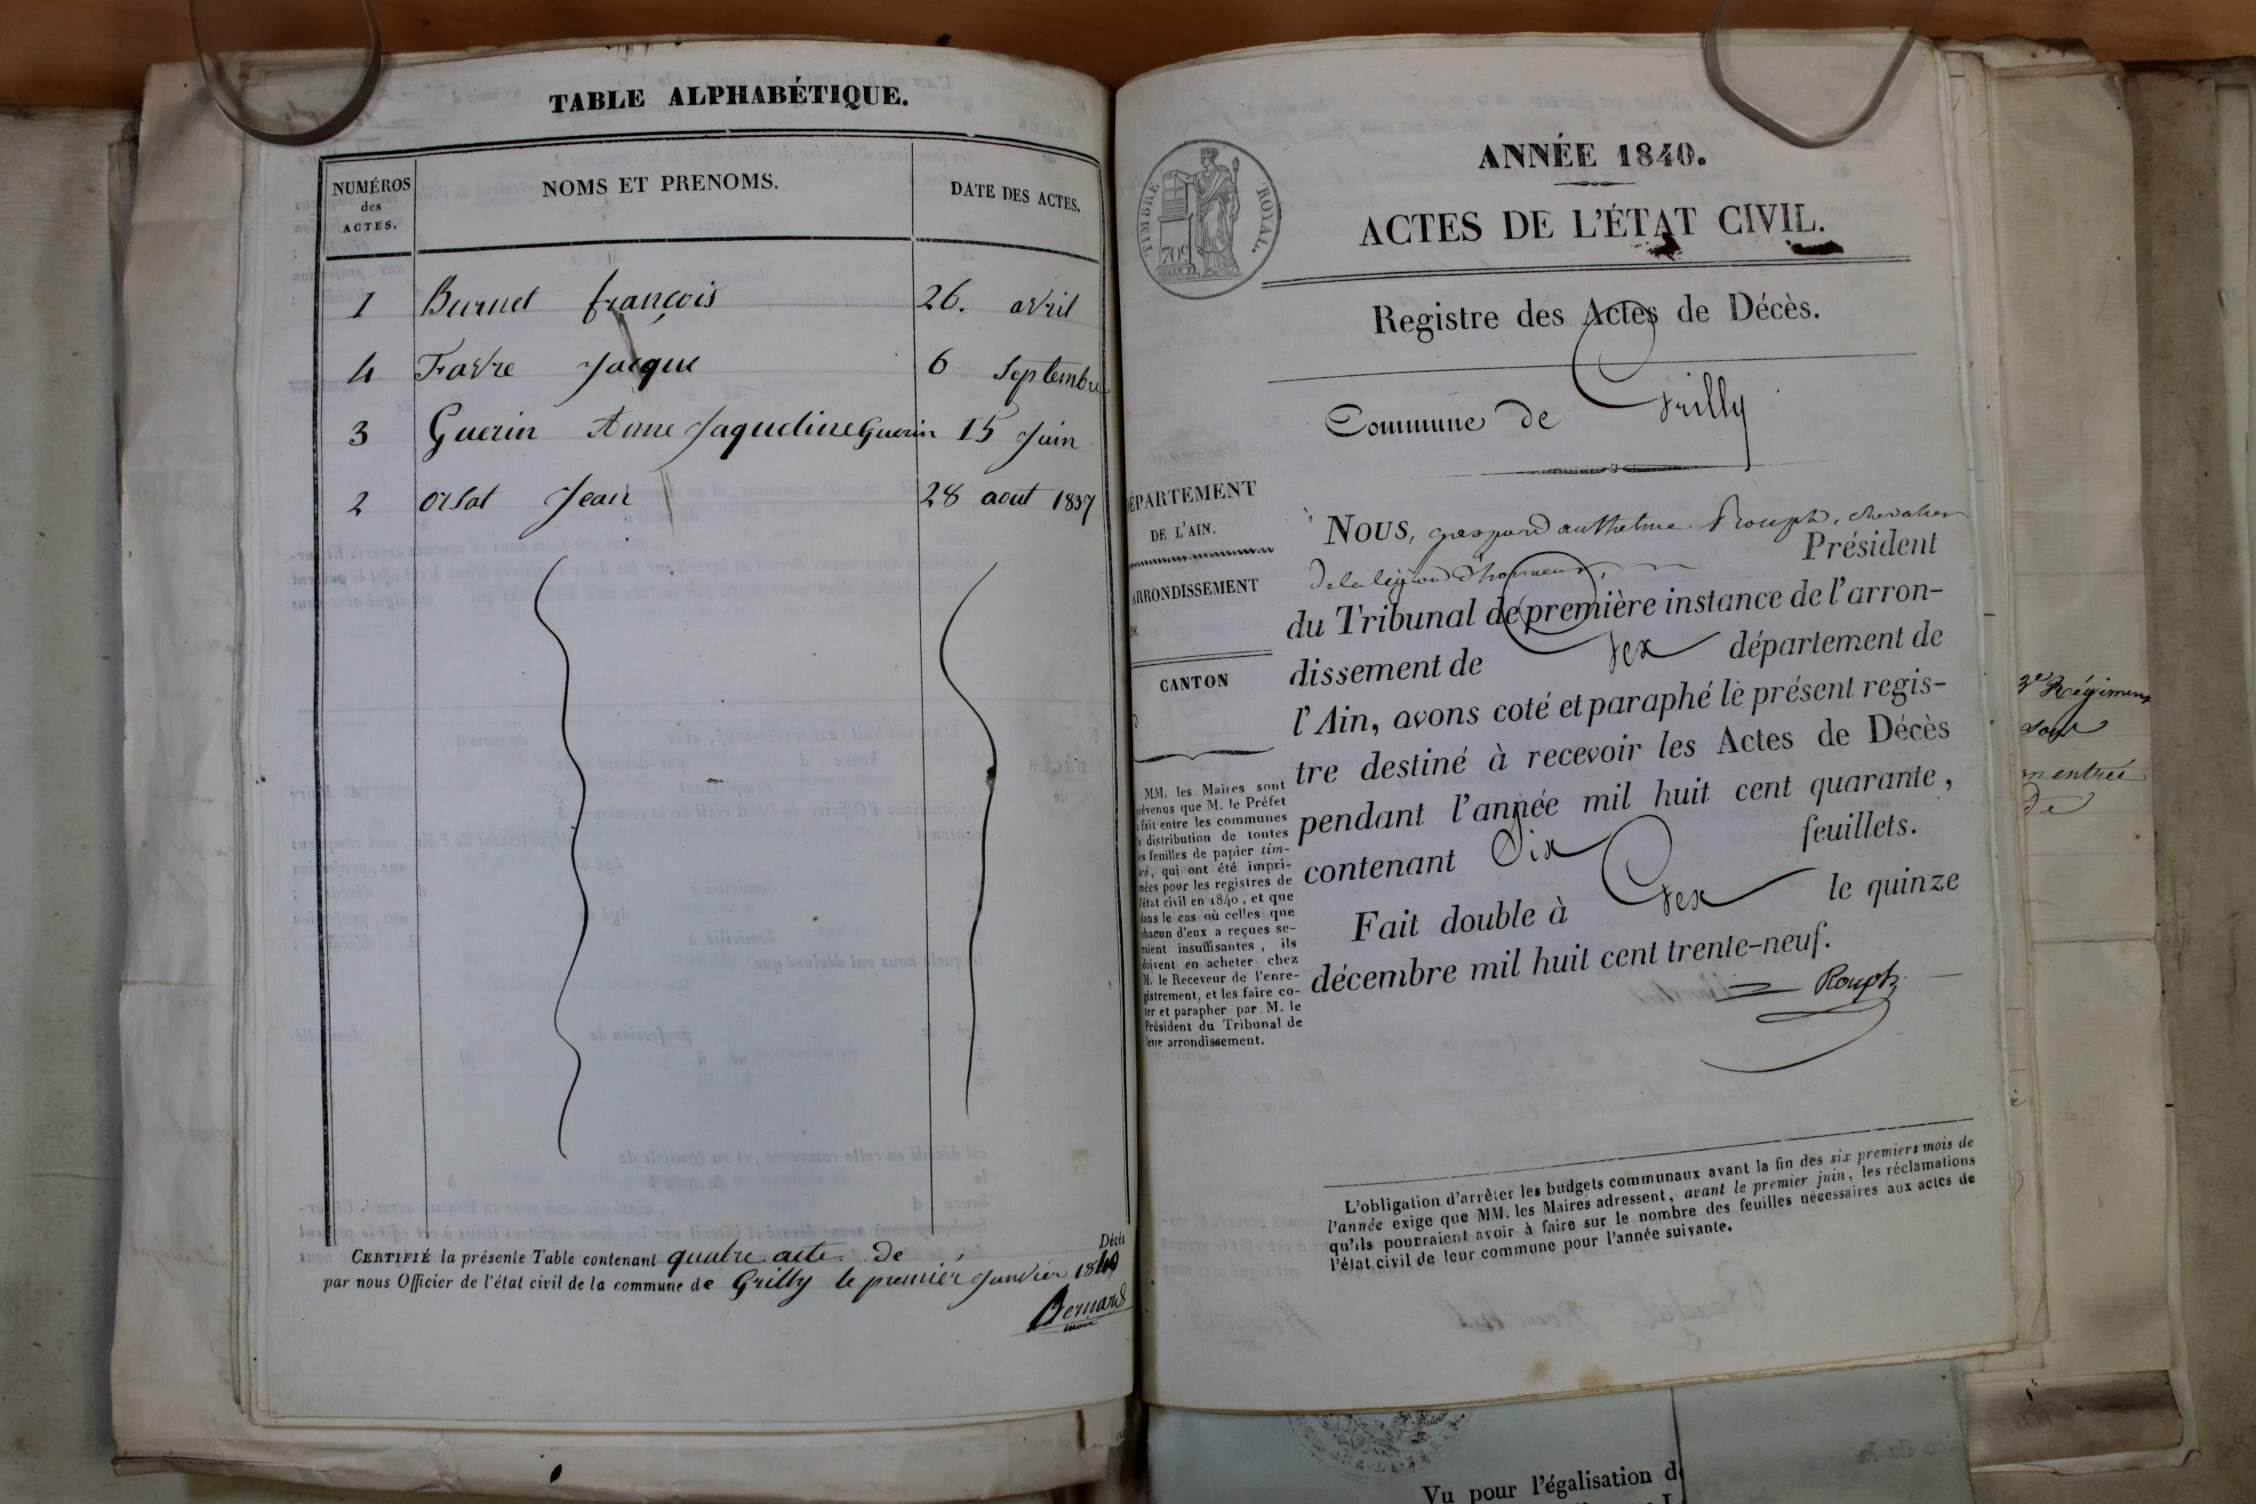 TABLE ALPHABÉTIQUE.
NUMÉROS
des
ACTES.
NOMS ET PRENOMS.
DATE DES ACTES.
1 Burnet françois 26. avril
4 Favre Jacque 6 Septembre
3 Guerin Anne Jaqueline Guerin 15 Juin
2 orsat Jean 28 aout 1837
CERTIFIÉ la présente Table contenant quatre acte de Décès
par nous Officier de l'état civil de la commune de Grilly le premier Janvier 1840
Bernard
maire
TIMBRE ROYAL.
70c
ANNÉE 1840.
ACTES DE L'ÉTAT CIVIL.
Registre des Actes de Décès.
Commune de Grilly
DÉPARTEMENT
DE L'AIN.
ARRONDISSEMENT
DE
CANTON
MM. les Maires sont
prévenus que M. le Préfet
a fait entre les communes
la distribution de toutes
les feuilles de papier tim-
bré, qui ont été impri-
mées pour les registres de
l'état civil en 1840, et que
dans le cas où celles que
chacun d'eux a reçues se-
raient insuffisantes, ils
doivent en acheter chez
M. le Receveur de l'enre-
gistrement, et les faire co-
ter et parapher par M. le
Président du Tribunal de
leur arrondissement.
NOUS, gaspard anthelme Rouph, chevalier
de la légion d'honneur, Président
du Tribunal de première instance de l'arron-
dissement de Gex département de
l'Ain, avons coté et paraphé le présent regis-
tre destiné à recevoir les Actes de Décès
pendant l'année mil huit cent quarante,
contenant Six feuillets.
Fait double à Gex le quinze
décembre mil huit cent trente-neuf.
Rouph
L'obligation d'arrêter les budgets communaux avant la fin des six premiers mois de
l'année exige que MM. les Maires adressent, avant le premier juin, les réclamations
qu'ils pourraient avoir à faire sur le nombre des feuilles nécessaires aux actes de
l'état civil de leur commune pour l'année suivante.
3e Régiment
entrée
de
Vu pour l'égalisation d